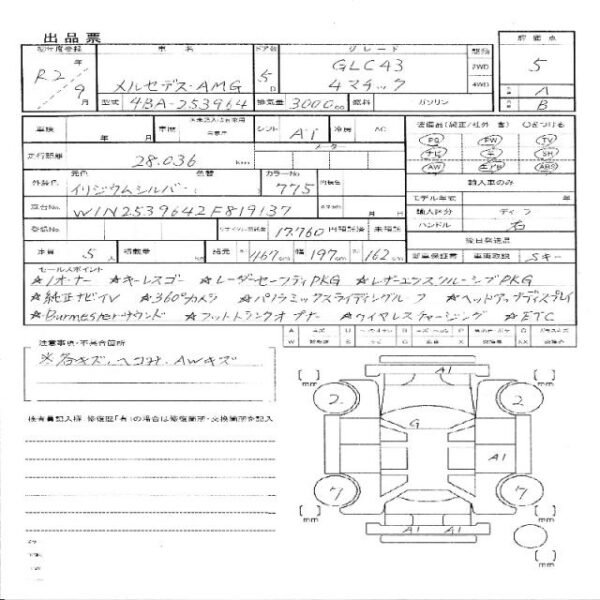 出品票
初年度登録 車名 ドア数 グレード 駆動 評価点
R2年 9月 メルセデス・AMG 5D GLC43 4マチック 2WD 4WD 5 A B
型式 4BA-253964 排気量 3000cc 燃料 ガソリン
車検 年 月 車歴 シフト Ai 冷房 AC
PS PW TV
ナビ SR SH
AW エアB ABS
走行距離 28.036 km メーター
外装色 元色 色替 カラーNo 内装色 輸入車のみ
イリジウムシルバー 775
モデル年式 年
車台No. W1N2539642F819137 月 日
輸入区分 ディーラ
ハンドル 右
登録No. リサイクル預託金 17.760 円 預託済 未預託 後日発送品
乗員 5人 積載量 諸元 長 467cm 幅 197cm 高 162cm 新車保証書 車両取説 Sキー
セールスポイント
★1オーナー ★キーレスゴー ★レーダーセーフティPKG ★レザーエクスクルーシブPKG
★純正ナビTV ★360°カメラ ★パノラミックスライディングルーフ ★ヘッドアップディスプレイ
★Burmesterサウンド ★フットトランクオープナー ★ワイヤレスチャージング ★ETC
注意事項・不具合箇所
※各キズ、ヘコみ、AWキズ
検査員記入欄 修復歴「有」の場合は修復箇所・交換箇所を記入
A1
[ ] mm [ ] mm
2 2
G
A1
7 7
[ ] mm [ ] mm
A1 A1
[ ] mm